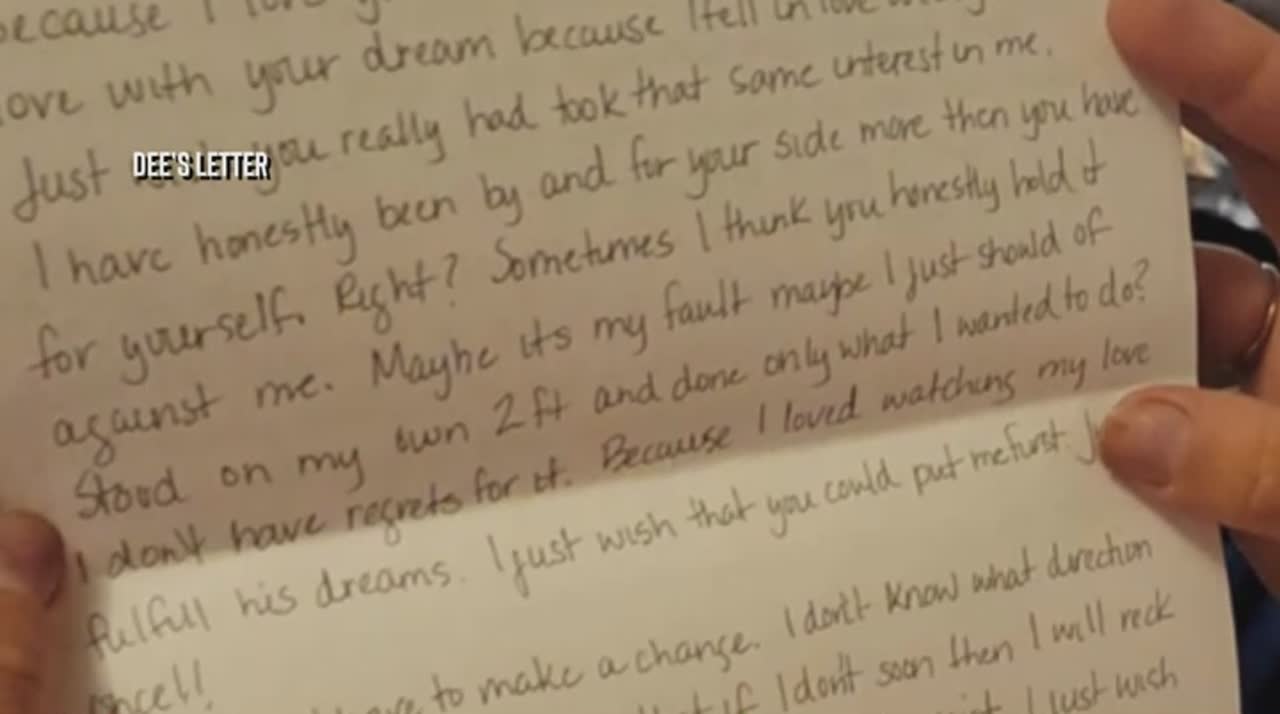 because I love
love with your dream because I fell in love
Just you really had took that same interest in me.
DEE'S LETTER
I have honestly been by and for your side more then you have
for yourself. Right? Sometimes I think you honestly hold it
against me. Maybe its my fault maybe I just should of
Stood on my own 2 ft and done only what I wanted to do?
I don't have regrets for it. Because I loved watching my love
fulfull his dreams. I just wish that you could put me first
once!!
to make a change. I don't know what direction
if I don't soon then I will reck
I just wish